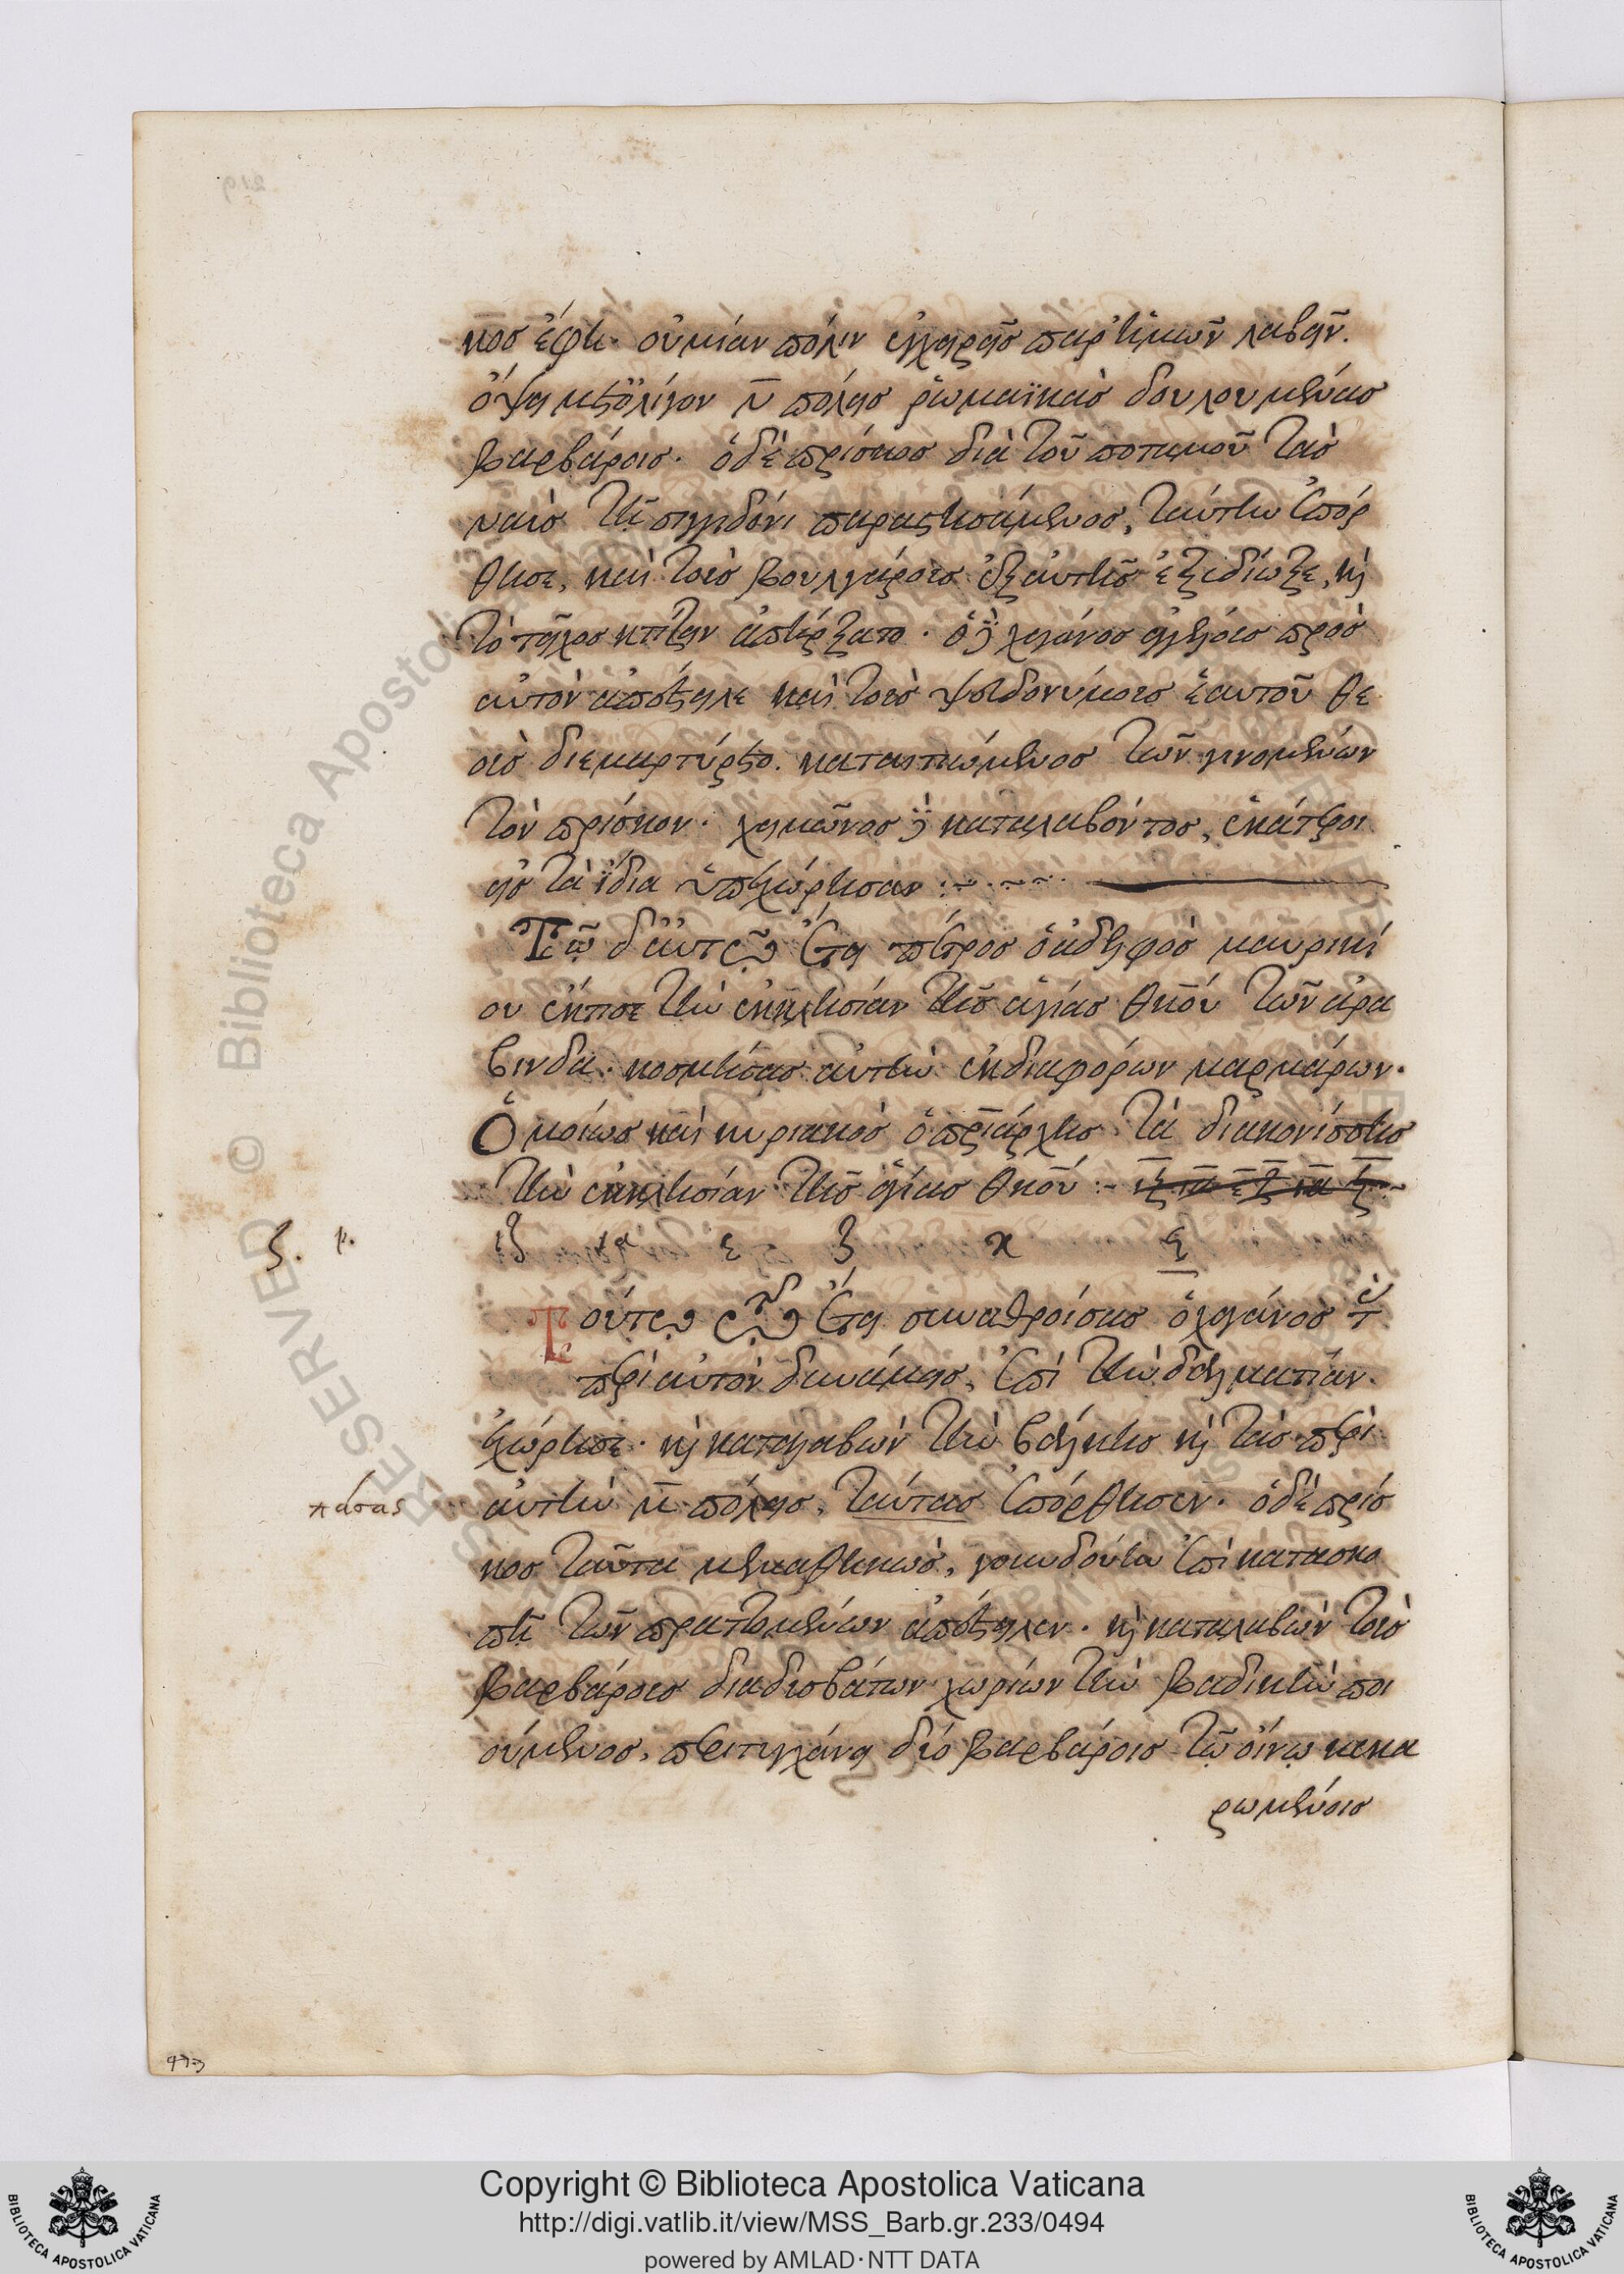 219
κος ἔφη· οὐ μίαν πόλιν ἐγχειρεῖς παρ' ἡμῶν λαβεῖν.
ὄψει μετ' ὀλίγον ν̄ πόλεις ῥωμαϊκὰς δουλουμένας
βαρβάροις· ὁ δὲ πρίσκος διὰ τοῦ ποταμοῦ τὰς
ναῦς τῇ σιγγιδόνι παραστησάμενος, ταύτην ἐπόρ
θησε, καὶ τοὺς βουλγάρους ἐξ αὐτῆς ἐξεδίωξε, καὶ
τὸ τεῖχος κτίζειν ἀπήρξατο· ὁ δὲ χαγάνος ἀγγέλους πρὸς
αὐτὸν ἀπέστειλε καὶ τοὺς ψευδονύμους ἑαυτοῦ θε
οὺς διεμαρτύρετο. καταιτιώμενος τῶν γινομένων
τὸν πρίσκον· χειμῶνος δὲ καταλαβόντος, ἑκάτεροι
εἰς τὰ ἴδια ὑπεχώρησαν :~
Τῷ δ' αὐτῷ ἔτει πέτρος ὁ ἀδελφὸς μαυρικί
ου ἔκτισε τὴν ἐκκλησίαν τῆς ἁγίας θκ̄ου τῶν ἀρα
βινδα· κοσμήσας αὐτὴν ἐκ διαφόρων μαρμάρων·
Ὁμοίως καὶ κυριακὸς ὁ πριάρχης τὰ διακονίσσης
τὴν ἐκκλησίαν τῆς ἁγίας θκ̄ου :~
ς. ρ. ιζ ια ε ζ κ ς
Τούτῳ τῷ ἔτει συναθροίσας ὁ χαγάνος τὰς
περὶ αὐτὸν δυνάμεις, ἐπὶ τὴν δαλματίαν
ἐχώρησε· καὶ καταλαβὼν τὴν βάλκης καὶ τὰς περὶ
πάσας αὐτὴν μ̄ πόλεις, ταύτας ἐπόρθησεν· ὁ δὲ πρίσ
κος ταῦτα μεμαθηκὼς, γουνδούην ἐπὶ κατασκο
πῇ τῶν πραττομένων ἀπέστειλεν· καὶ καταλαβὼν τοὺς
βαρβάρους διαδυσβάτων χωρίων τὴν βαδικτὴν ποι
ούμενος, περιτυγχάνει δύο βαρβάροις τῷ οἴνῳ κεκα
ρωμένοις
RESERVED © Biblioteca Apostolica Vaticana
Copyright © Biblioteca Apostolica Vaticana
http://digi.vatlib.it/view/MSS_Barb.gr.233/0494
powered by AMLAD·NTT DATA
BIBLIOTECA APOSTOLICA VATICANA
BIBLIOTECA APOSTOLICA VATICANA